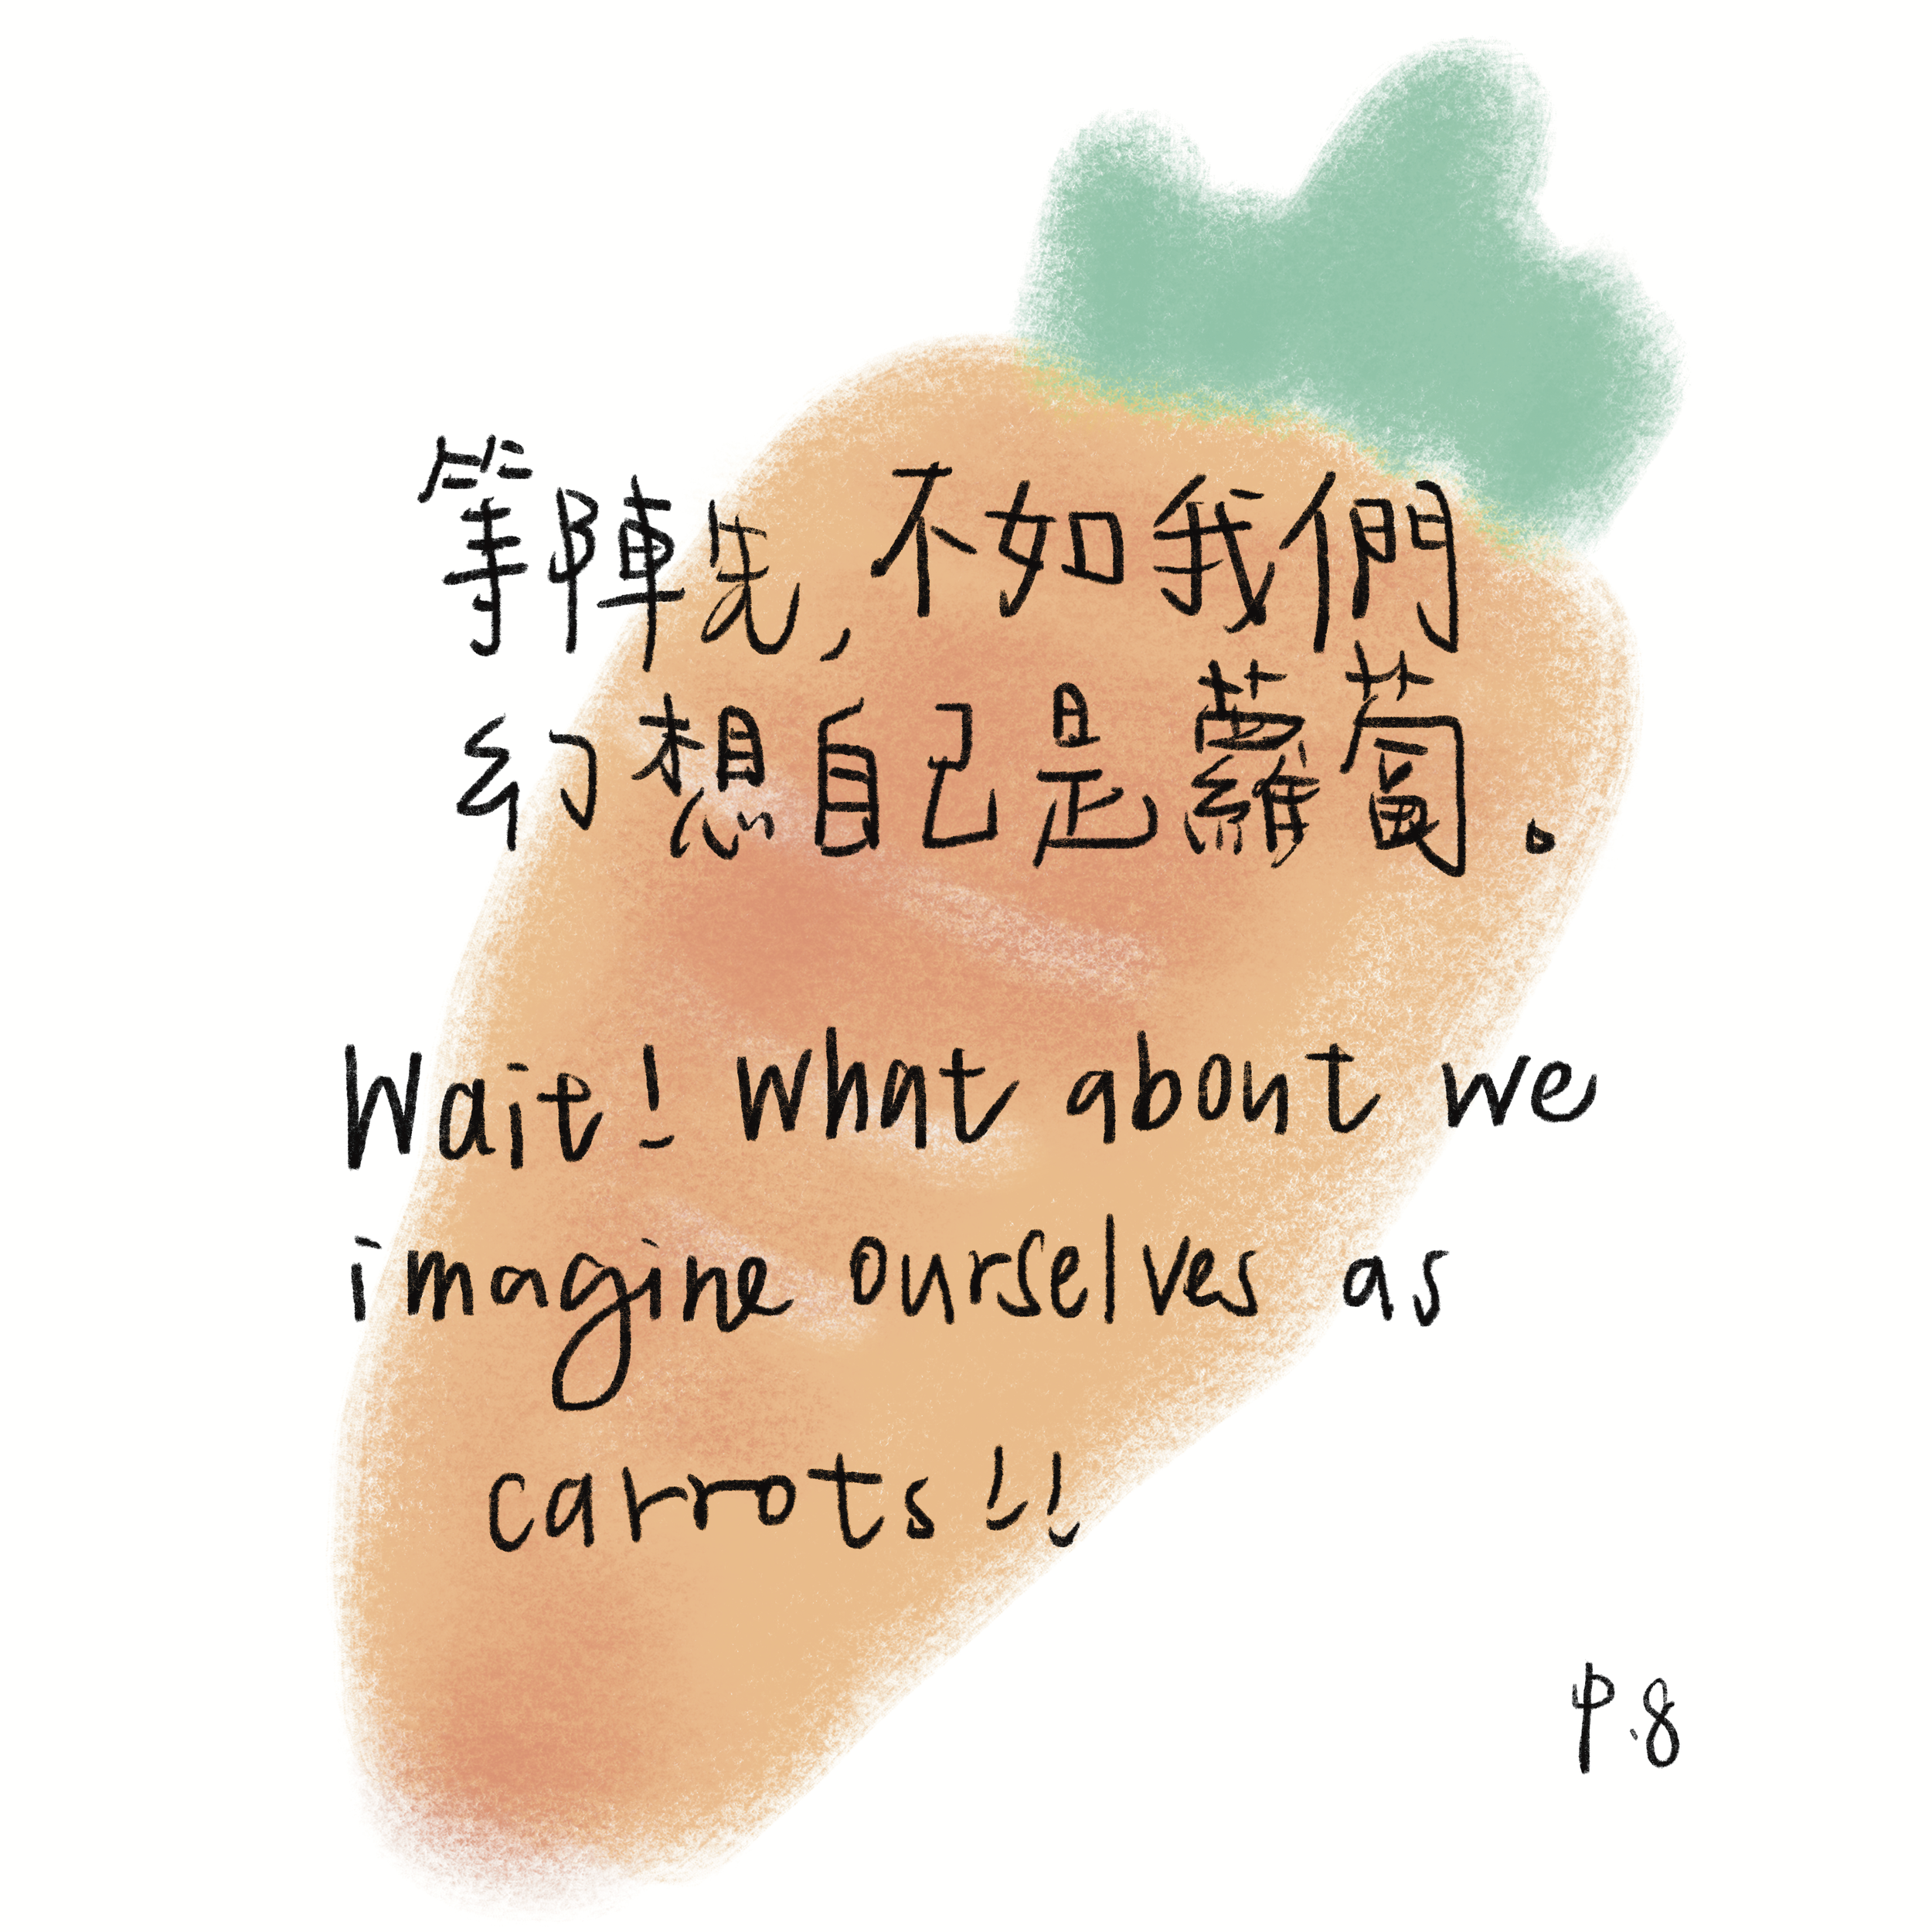 等陣先,不如我們
幻想自己是蘿蔔。
Wait! What about we
imagine ourselves as
carrots!!
P.8